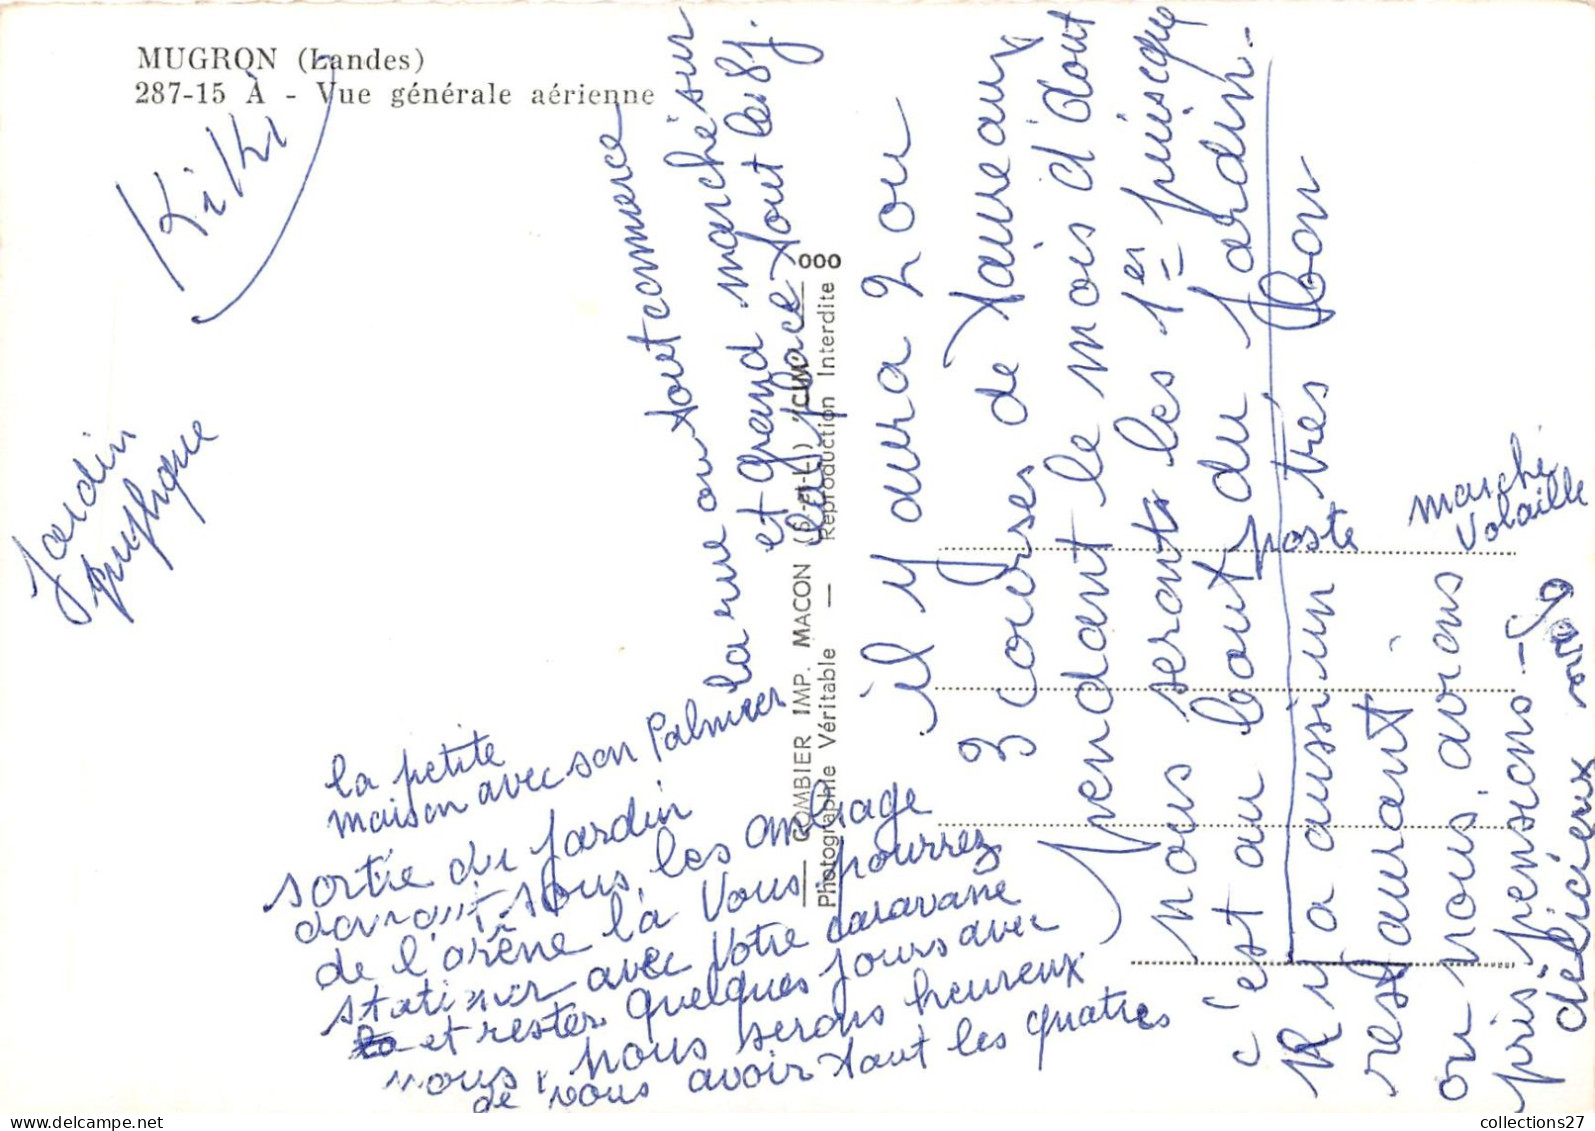 MUGRON (Landes)
287-15 A - Vue générale aérienne
Kiki
Jardin
publique
la petite
maison avec son Palmier
sortie du Jardin
sous les ombrage
de l'arêne là Vous pourrez
avec Votre caravane
et rester quelques jours avec
nous, nous serons heureux
de vous avoir tout les quatres
la rue ou tout commerce
et grand marché sur
la place tout les 8 j.
COMBIER IMP. MACON (S.-et-L.) "CIM"
Photographie Véritable — Reproduction Interdite
000
il y aura 2 ou
3 courses de taureaux
pendant le mois d'aout
nous seront les 1er puisque
c'est au bout du Jardin.
poste
Il y a aussi un très bon
restaurant
ou nous avions
pris pensions -
délicieux
marché
Volaille
collections27